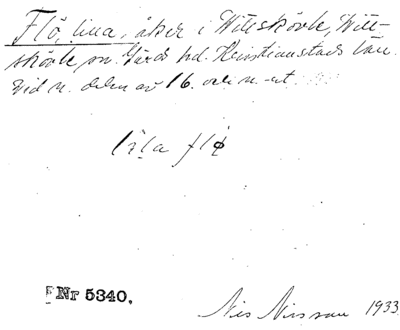 Flö, lilla, åker i Wittskövle, Witt-
skövle sn. Gärds hd. Kristianstads län.
Vid n. delen av 16. och n.-ut.
lìla flø
Nr 5340.
Nis Nissan 1933.